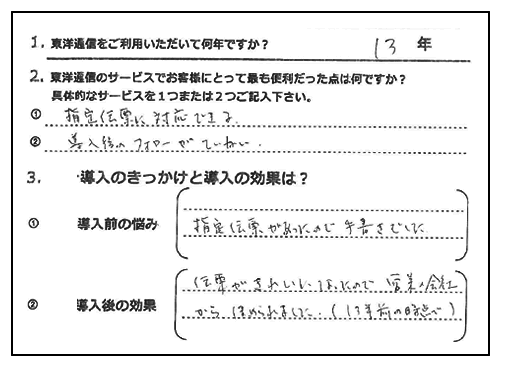 1. 東洋通信をご利用いただいて何年ですか? 13 年
2. 東洋通信のサービスでお客様にとって最も便利だった点は何ですか?
具体的なサービスを1つまたは2つご記入下さい。
① 指定伝票に対応できる
② 導入後のフォローがていねい。
3. ・導入のきっかけと導入の効果は?
① 導入前の悩み
指定伝票があったので手書きでした
② 導入後の効果
伝票がきれいになったので 営業の会社
からほめられました。(13年前の時点で)